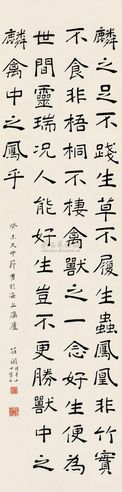 麟之足不踐生草不履生蟲鳳凰非竹實
不食非梧桐不棲禽獸之一念好生便為
世間靈瑞況人能好生豈不更勝獸中之
麟禽中之鳳乎